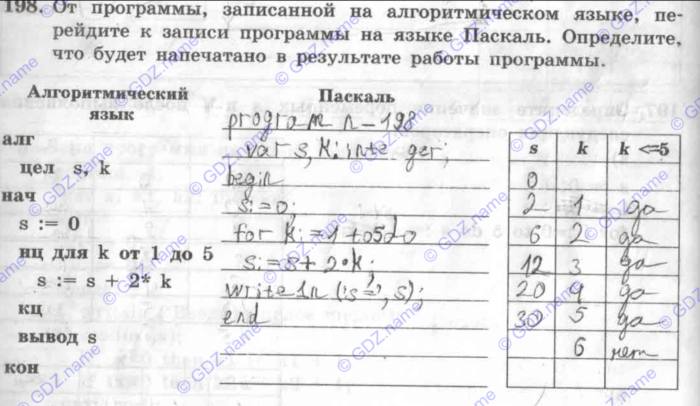 198. От программы, записанной на алгоритмическом языке, пе-
рейдите к записи программы на языке Паскаль. Определите,
что будет напечатано в результате работы программы.
Алгоритмический
язык
алг
цел s, k
нач
s := 0
нц для k от 1 до 5
s := s + 2* k
кц
вывод s
кон
Паскаль
program n-198
var s, k: integer;
begin
s:=0;
for k:=1 to 5 do
s:=s+2*k;
writeln ('s=', s);
end
s k k <=5
0
2 1 да
6 2 да
12 3 да
20 4 да
30 5 да
6 нет
© GDZ.name